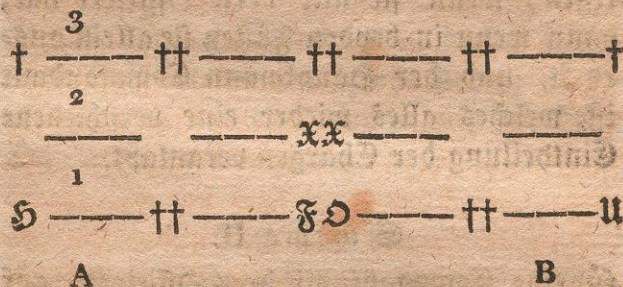 3
† —— †† —— †† —— †† —— †
2
—— —— XX —— ——
1
H —— †† —— F O —— †† —— U
A B